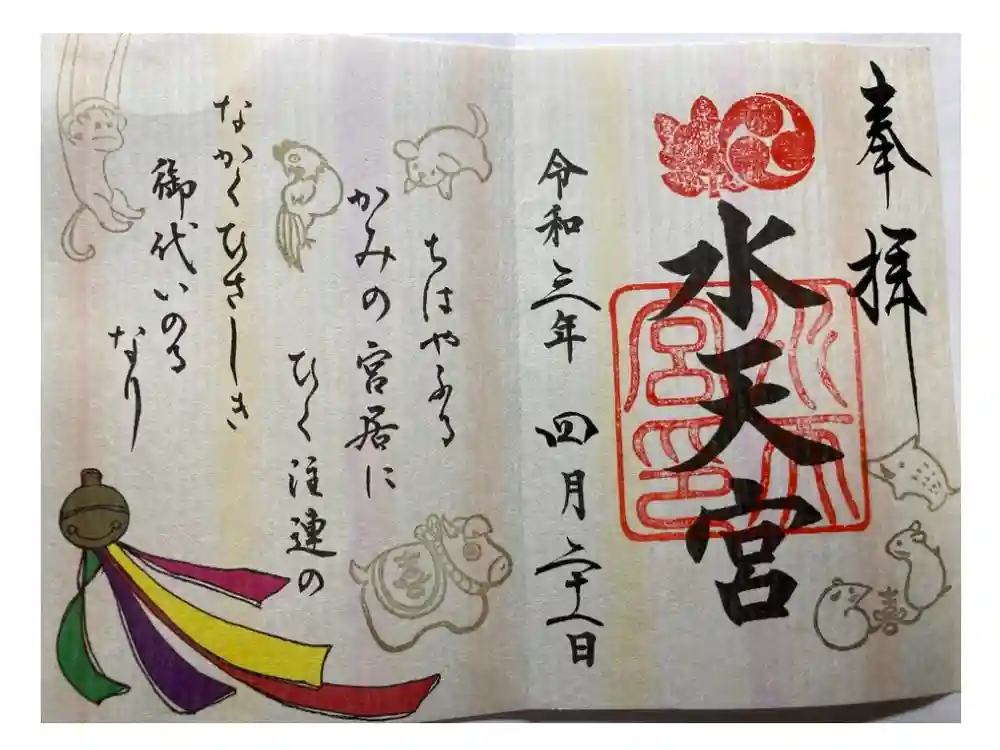 奉拝
水天宮
令和三年 四月二十一日
ちはやふる
かみの宮居に
ひく注連の
なかくひさしき
御代いのる
なり
喜
喜